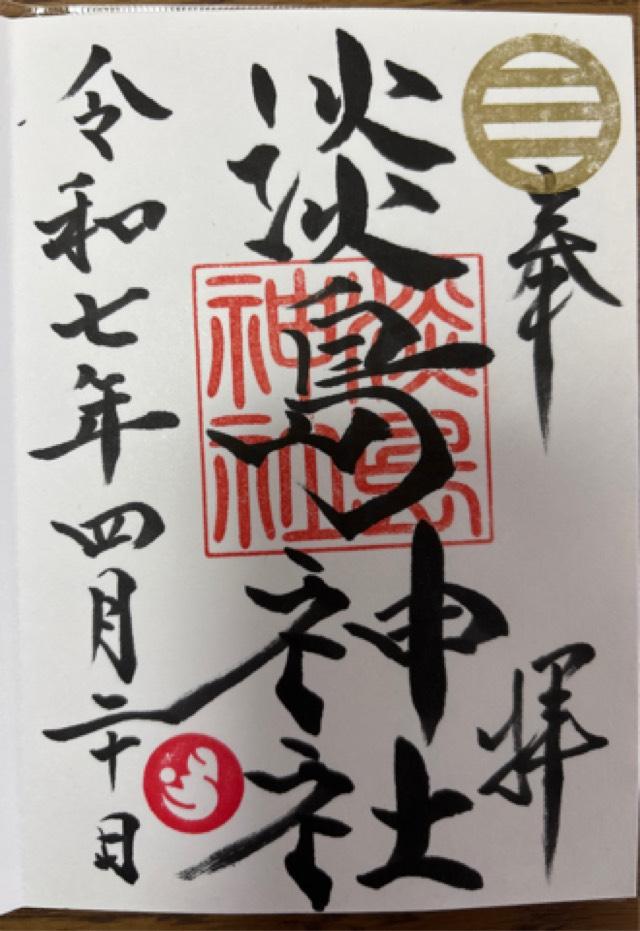 奉拝
淡嶋神社
淡島
神社
令和七年四月二十日